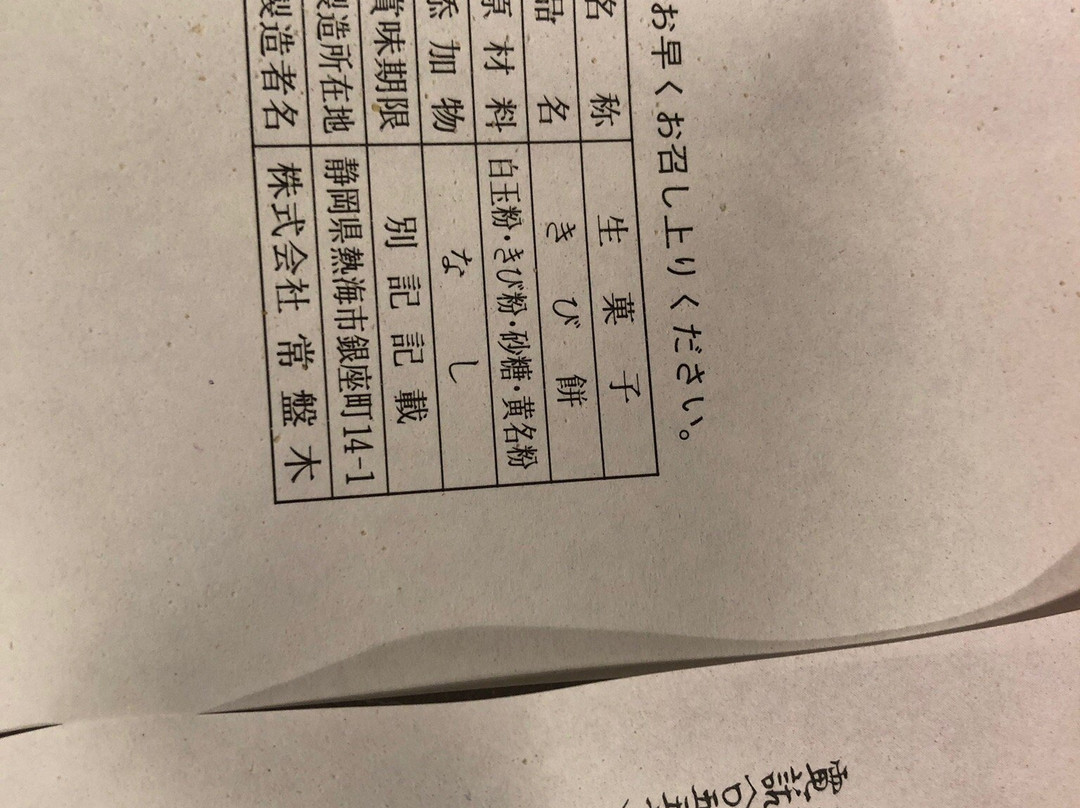 お早くお召し上りください。
名称 生菓子
品名 きび餅
原材料 白玉粉・きび粉・砂糖・黄名粉
添加物 なし
賞味期限 別記記載
製造所在地 静岡県熱海市銀座町14-1
製造者名 株式会社 常盤木
電話(〇五五